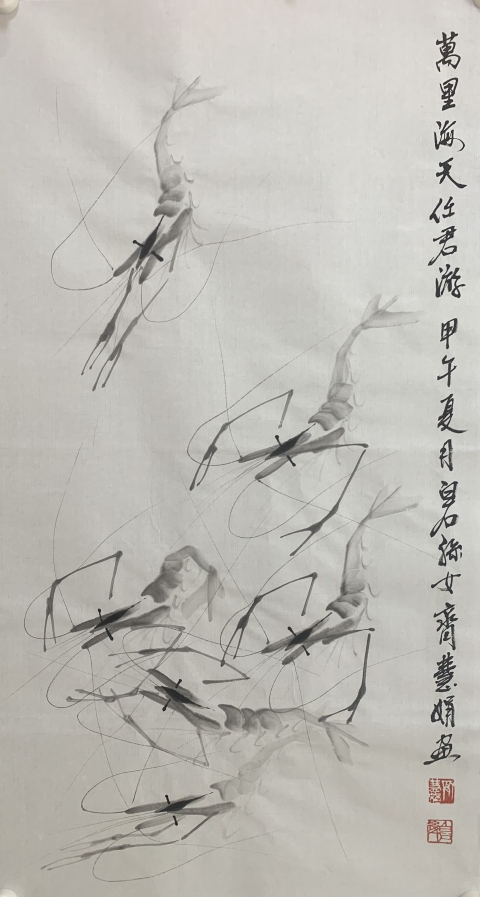 萬里海天任君游 甲午夏月白石孫女齊慧娟畫